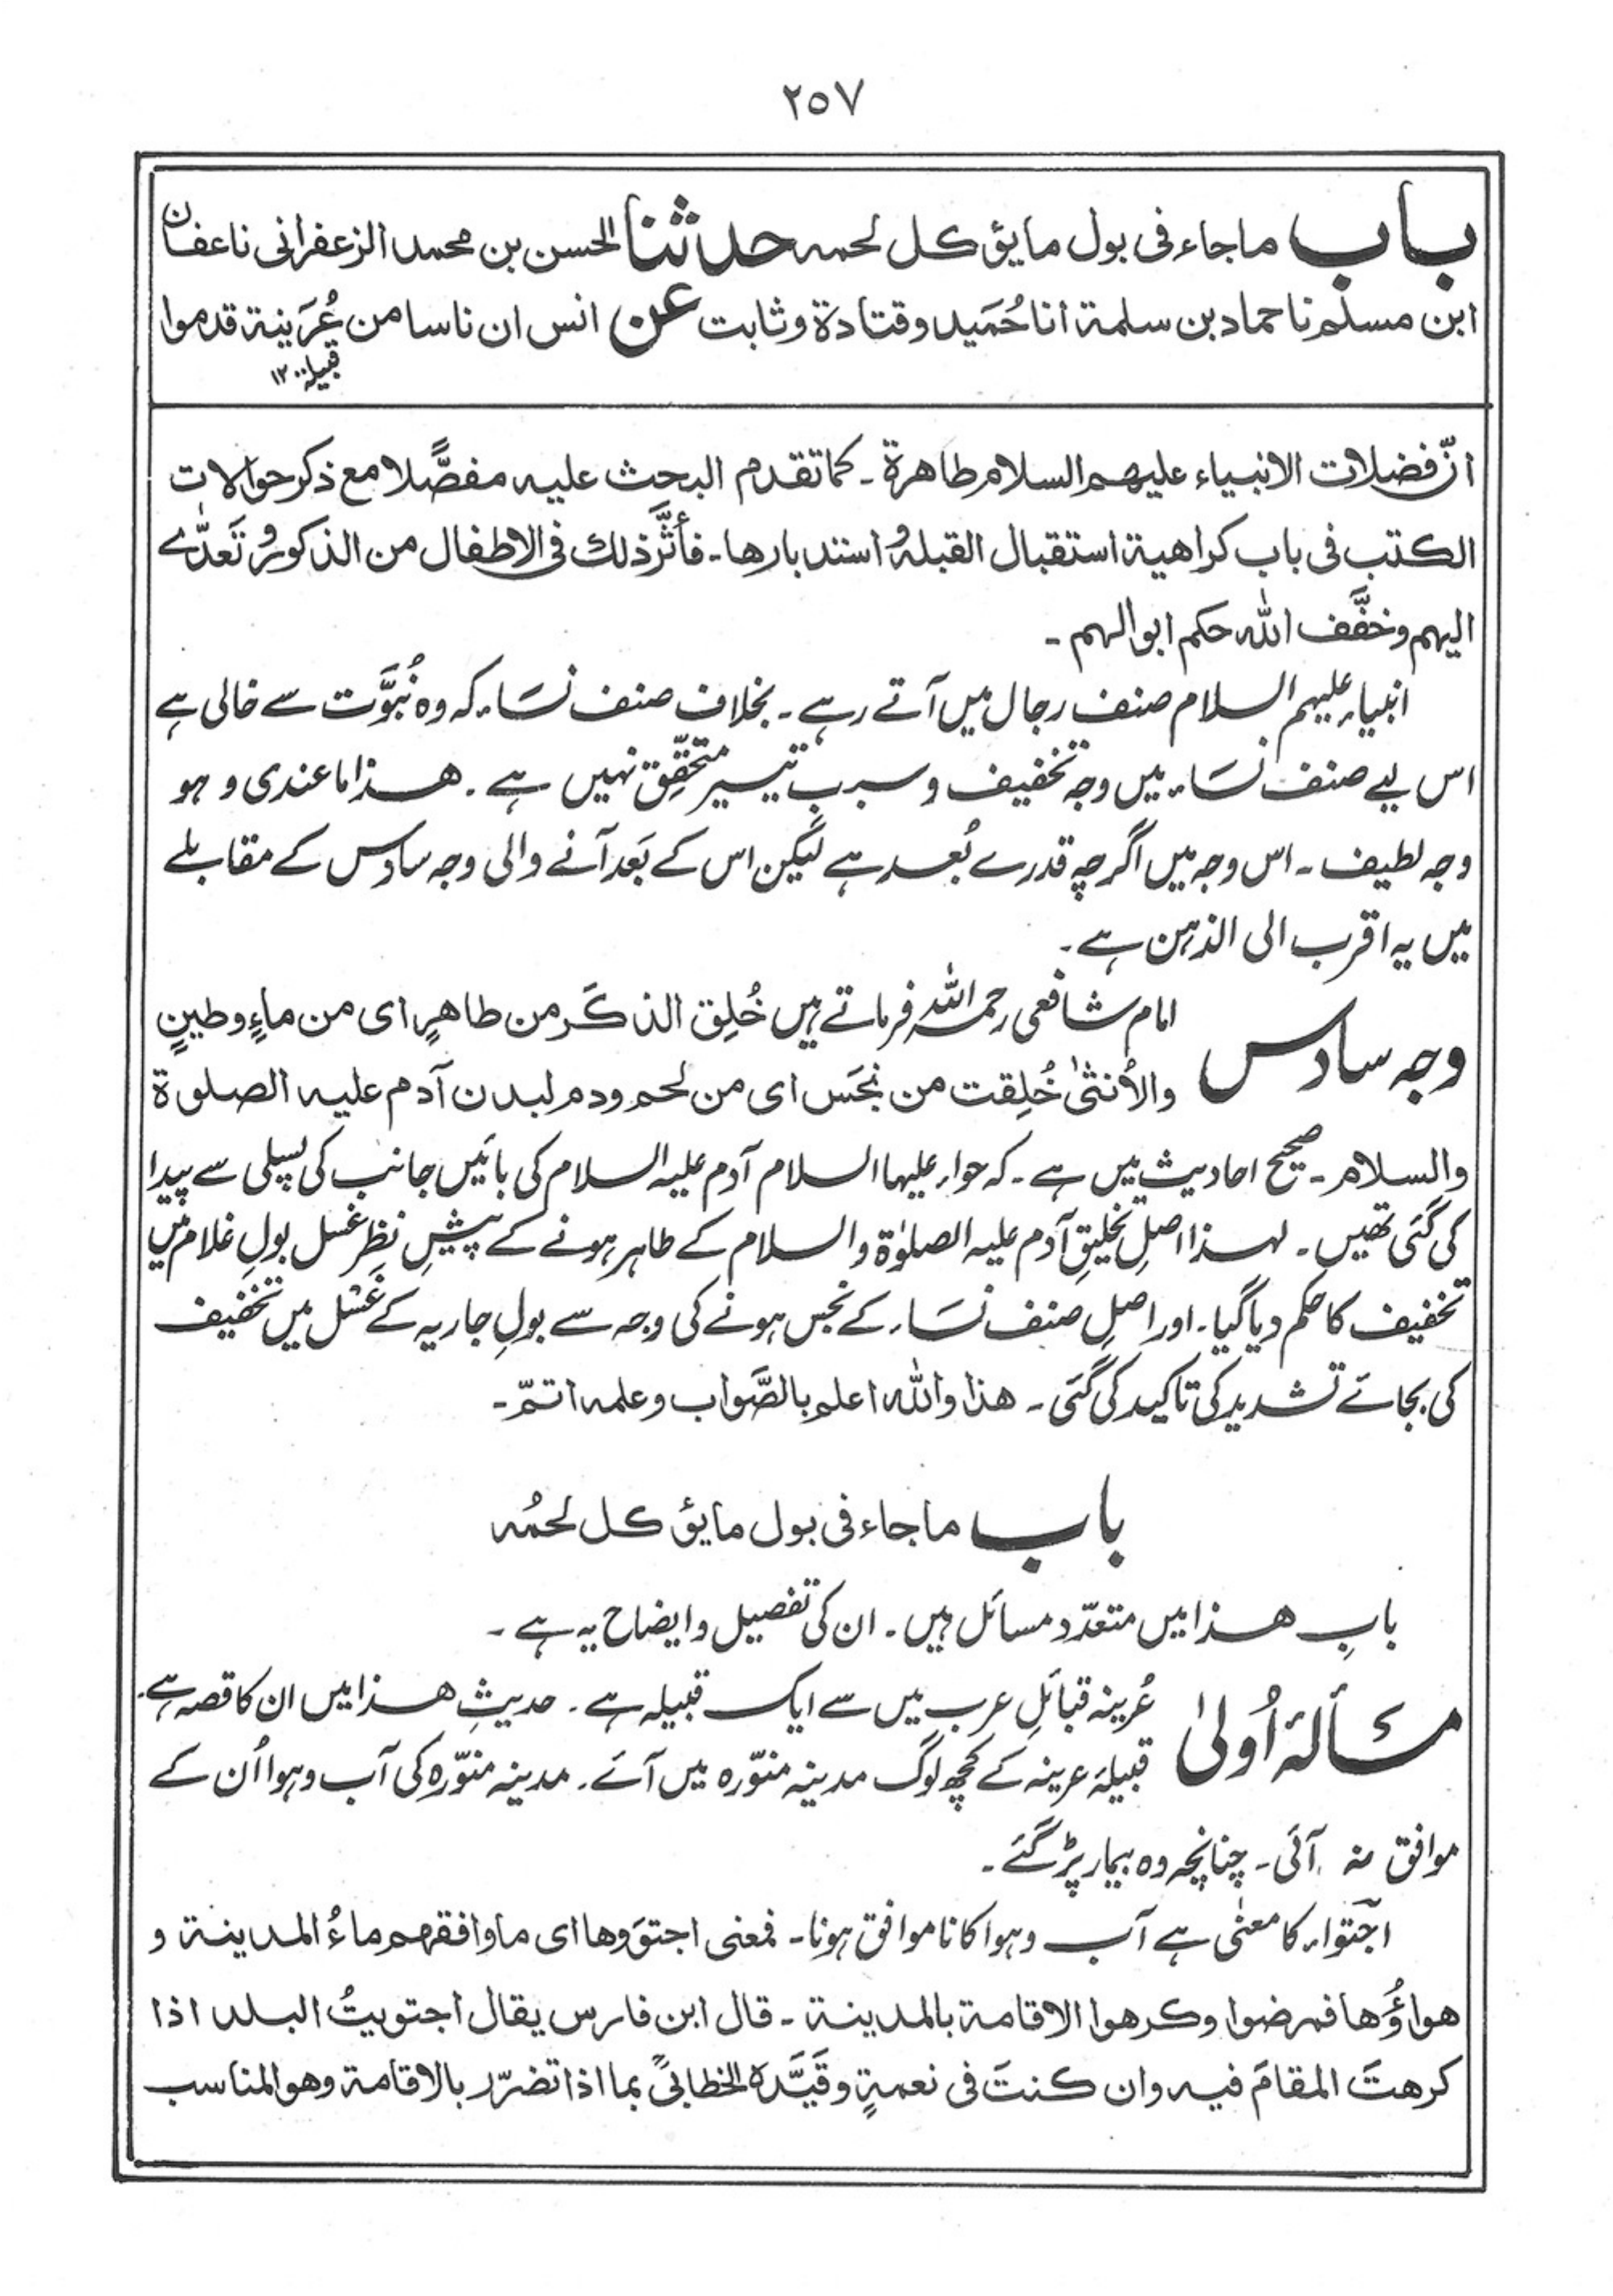 ٢٥٧
باب ماجاء فی بول مایؤکل لحمہ حدثنا الحسن بن محمد الزعفرانی نا عفان
ابن مسلم نا حماد بن سلمۃ انا حُمَید وقتادۃ وثابت عن انس ان ناسا من عُرَینۃ قدموا
قبیلۃ ١٢
انّ فضلات الانبیاء علیہم السلام طاھرۃ ۔ کما تقدم البحث علیہ مفصَّلا مع ذکر حوالات
الکتب فی باب کراھیۃ استقبال القبلۃ و استدبارھا ۔ فأثَّر ذلک فی الاطفال من الذکور و تَعدّٰے
الیہم وخفَّف اللّٰہ حکم ابوالہم ۔
انبیاء علیہم السلام صنف رجال میں آتے رہے ۔ بخلاف صنف نسَاء کہ وہ نُبوَّت سے خالی ہے
اس لیے صنف نسَاء میں وجہ تخفیف وسبب تیسیر متحقِّق نہیں ہے ۔ ھذا ما عندی و ہو
وجہ لطیف ۔ اس وجہ میں اگرچہ قدرے بُعد ہے لیکن اس کے بَعد آنے والی وجہ سادس کے مقابلے
میں یہ اقرب الی الذہن ہے ۔
وجہ سادس امام شافعی رحمہ اللّٰہ فرماتے ہیں خُلِق الذکَر من طاھرٍ ای من ماءٍ وطینٍ
والاُنثیٰ خُلِقت من نجَس ای من لحم ودم لبدن آدم علیہ الصلوۃ
والسلام ۔ صحیح احادیث میں ہے ۔ کہ حواء علیہا السلام آدم علیہ السلام کی بائیں جانب کی پسلی سے پیدا
کی گئی تھیں ۔ لہذا اصلِ تخلیقِ آدم علیہ الصلوٰۃ والسلام کے طاہر ہونے کے پیشِ نظر غسل بولِ غلام میں
تخفیف کا حکم دیا گیا ۔ اور اصلِ صنف نسَاء کے نجس ہونے کی وجہ سے بولِ جاریہ کے غَسْل میں تخفیف
کی بجائے تشدید کی تاکید کی گئی ۔ ھذا واللّٰہ اعلم بالصَّواب وعلمہ اتمّ ۔
باب ماجاء فی بول مایؤکل لحمُہ
بابِ ھذا میں متعدّد مسائل ہیں ۔ ان کی تفصیل و ایضاح یہ ہے ۔
مسألۂ اُولیٰ عُرینہ قبائلِ عرب میں سے ایک قبیلہ ہے ۔ حدیثِ ھذا میں ان کا قصہ ہے ۔
قبیلۂ عرینہ کے کچھ لوگ مدینہ منوّرہ میں آئے ۔ مدینہ منوّرہ کی آب وہوا اُن کے
موافق نہ آئی ۔ چنانچہ وہ بیمار پڑ گئے ۔
اجتواء کا معنٰی ہے آب وہوا کا ناموافق ہونا ۔ فمعنی اجتوَوھا ای ما وافقہم ماءُ المدینۃ و
ھواؤُھا فمرضوا وکرھوا الاقامۃ بالمدینۃ ۔ قال ابن فارس یقال اجتویتُ البلد اذا
کرھتَ المقامَ فیہ وان کنتَ فی نعمۃٍ وقَیَّدہ الخطابیّ بما اذا تضرّر بالاقامۃ وھو المناسب